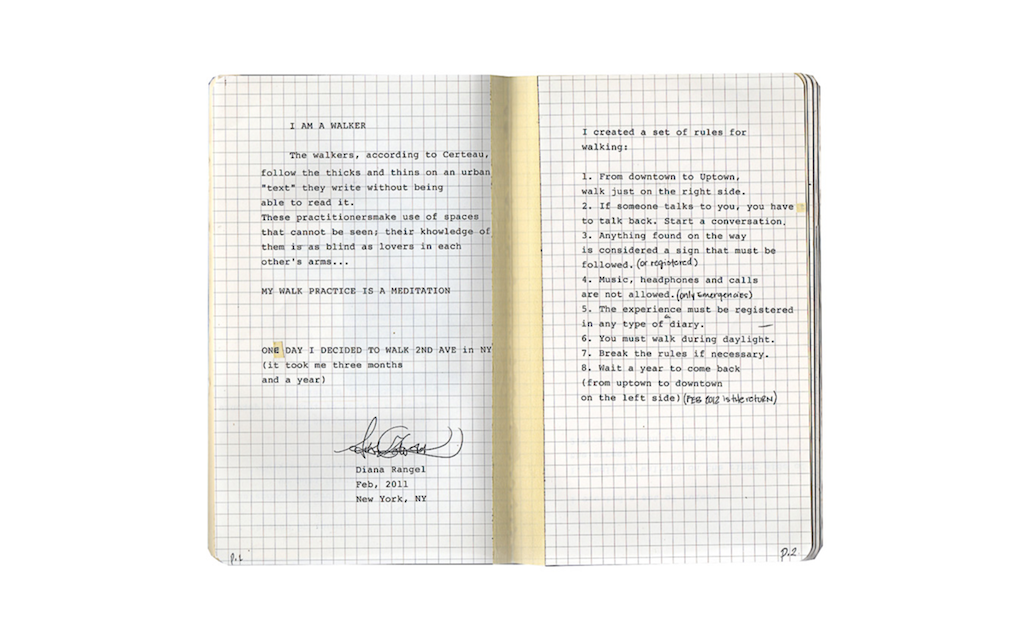 I AM A WALKER
The walkers, according to Certeau,
follow the thicks and thins on an urban
"text" they write without being
able to read it.
These practitionersmake use of spaces
that cannot be seen; their khowledge of
them is as blind as lovers in each
other's arms...
MY WALK PRACTICE IS A MEDITATION
ONE DAY I DECIDED TO WALK 2ND AVE in NY
(it took me three months
and a year)
Diana Rangel
Feb, 2011
New York, NY
P.1
I created a set of rules for
walking:
1. From downtown to Uptown,
walk just on the right side.
2. If someone talks to you, you have
to talk back. Start a conversation.
3. Anything found on the way
is considered a sign that must be
followed. (or registered)
4. Music, headphones and calls
are not allowed. (only emergencies)
5. The experience must be registered
in any type of a diary.
6. You must walk during daylight.
7. Break the rules if necessary.
8. Wait a year to come back
(from uptown to downtown
on the left side) (FEB 2012 is the return)
P.2